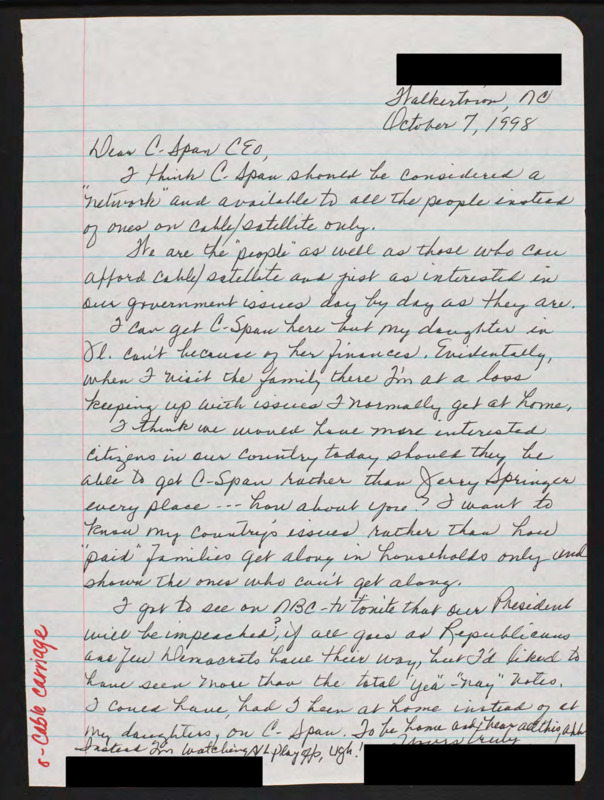 Walkertown, NC
October 7, 1998
Dear C-Span CEO,
I think C-Span should be considered a
"network" and available to all the people instead
of ones on cable/satellite only.
We are the "people" as well as those who can
afford cable/satellite and just as interested in
our government issues day by day as they are.
I can get C-Span here but my daughter in
Il. can't because of her finances. Evidentally,
when I visit the family there I'm at a loss
keeping up with issues I normally get at home.
I think we would have more interested
citizens in our country today should they be
able to get C-Span rather than Jerry Springer
every place --- how about you? I want to
know my country's issues rather than how
"paid" families get along in households only and
shown the ones who can't get along.
I got to see on NBC-tv tonite that our President
will be impeached? if all goes as Republicans
and few Democrats have their way, but I'd liked to
have seen more than the total "yea"-"nay" votes.
I could have, had I been at home instead of at
my daughters, on C-Span. To be home and hear all this, ahh
Instead I'm watching NL playoffs, ugh!
Yours truly
8-Cable carriage